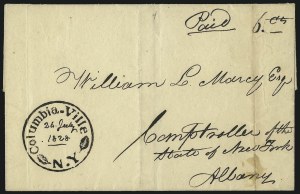 Paid 6 cts
Columbia-Ville
26 July
1828
N.Y.
William L. Marcy Esq
Comptroller of the
State of New York
Albany